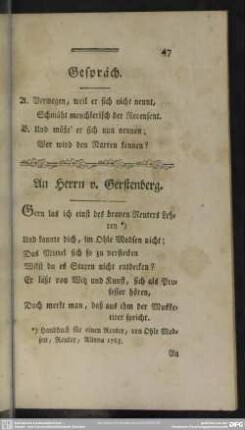 47
Gespräch.
A. Verwegen, weil er sich nicht nennt,
Schmäht meuchlerisch der Recensent.
B. Und müßt' er sich nun nennen;
Wer wird den Narren kennen?
An Herrn v. Gerstenberg.
Gern las ich einst des braven Reuters Leh-
ren *)
Und kannte dich, im Ohle Madsen nicht;
Das Mittel sich so zu verstecken
Willst du es Stazen nicht entdecken?
Er läßt von Witz und Kunst, sich als Pro-
fessor hören,
Doch merkt man, daß aus ihm der Muske-
tier spricht.
*) Handbuch für einen Reuter, von Ohle Mad-
sen, Reuter, Altona 1763.
An